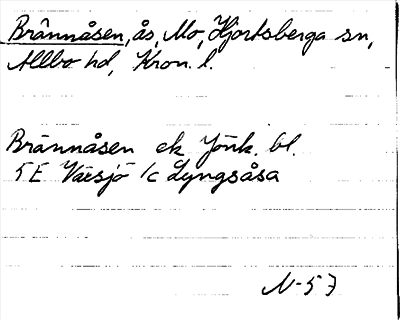 Brännåsen, ås, Mo, Hjortsberga sn,
Allbo hd, Kron. l.
Brännåsen ek Jönk. bl.
5E Växsjö 1c Lyngsåsa
N-57